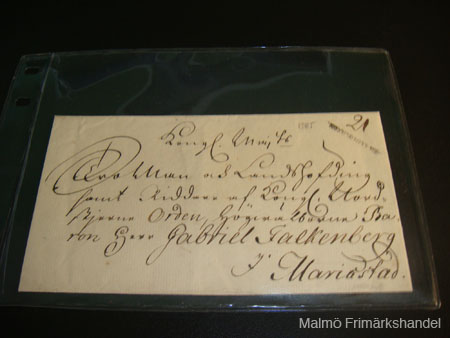 1785
21
Kongl. Maj:ts
Tro Man och Landshöfding
samt Riddare af Kongl. Nord-
stjerne Orden, Högvälborne Ba-
ron Herr Gabriel Falkenberg
I Mariæstad.
Malmö Frimärkshandel